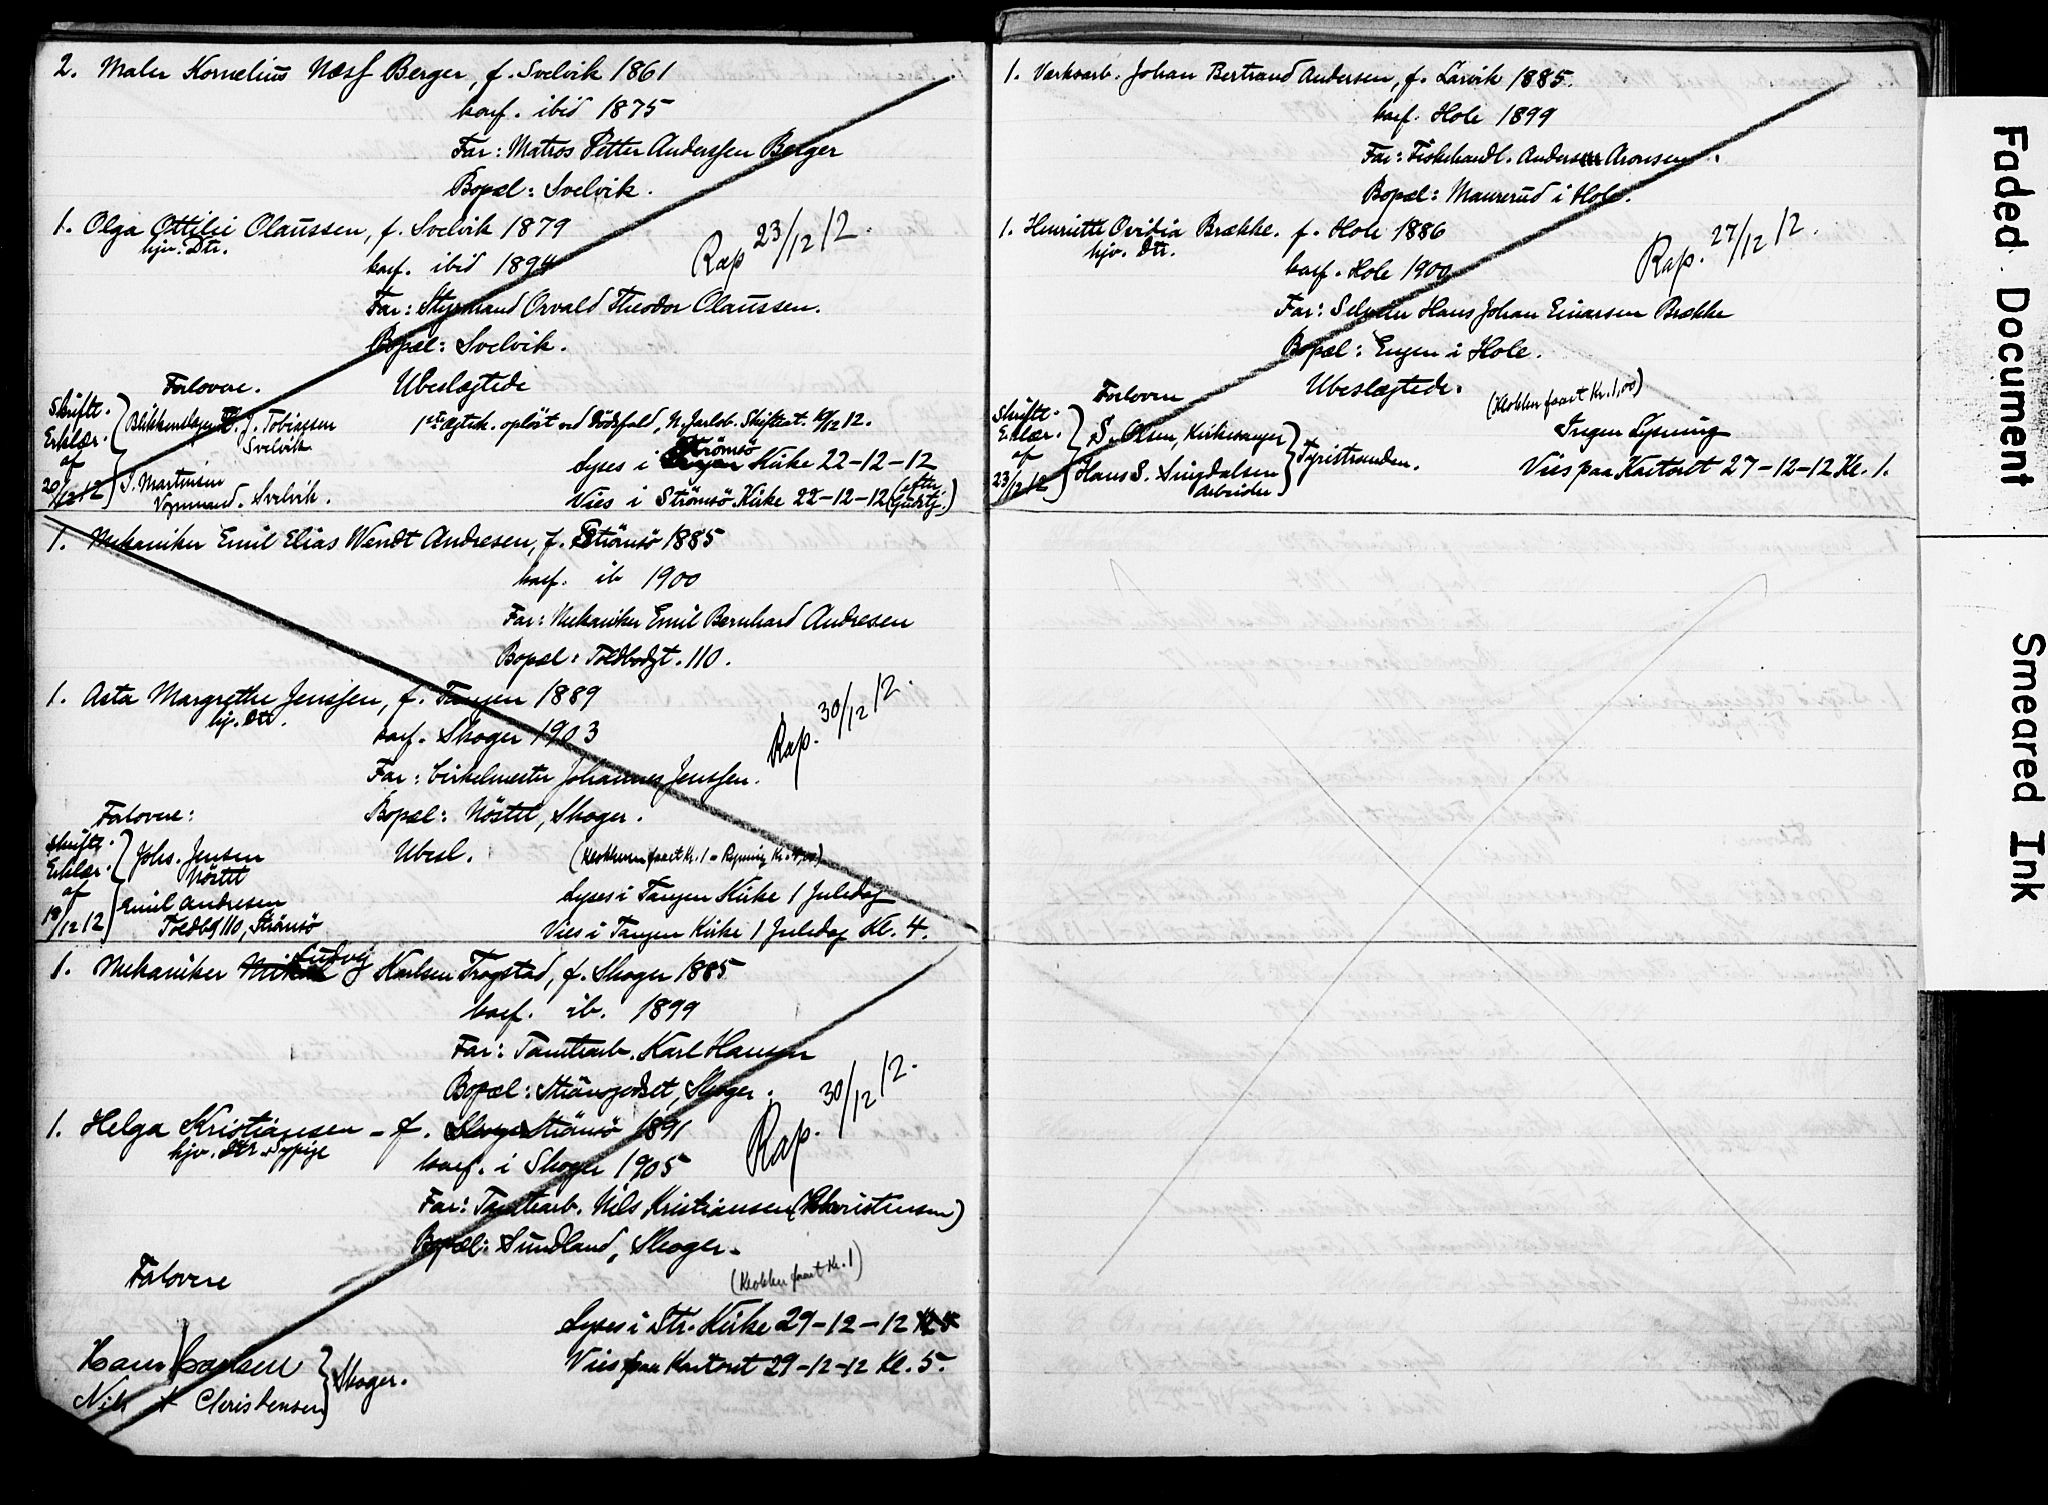 2. Maler Kornelius Næss Berger, f. Svelvik 1861
konf. ibid 1875
Far: Matros Petter Anderssen Berger
Bopæl: Svelvik.
1. Olga Ottilie Olaussen, f. Svelvik 1879
hjv. Dtr.
konf. ibid 1894
Rap 23/12 12.
Far: Styrmand Orvald Theodor Olaussen.
Bopæl: Svelvik.
Forlovere. Ubeslægtede
Skriftl. Erklær. af 20/12 12
J. Tobiassen Svelvik
1ste Ægtesk. opløst ved Dödsfald, N. Jarlsb. Skifteat. 6/12 12.
S. Martinsen
Vognmand. Svelvik.
Lyses i Strömsö Kirke 22-12-12
Vies i Strömsö Kirke 22-12-12 (efter Gudstj.)
1. Mekaniker Emil Elias Wendt Andresen, f. Strömsö 1885
konf. ib 1900
Far: Mekaniker Emil Bernhard Andresen
Bopæl: Toldbodgt. 110.
1. Asta Margrethe Jenssen, f. Tangen 1889
hj. Dtr.
konf. Skoger 1903
Rap. 30/12 12.
Far: Cirkelmester Johannes Jenssen.
Forlovere: Bopæl: Nöstet, Skoger.
Skriftl. Erklær. af 18/12 12
Johs. Jensen
Nöstet
Ubesl. (Klokkeren faaet Kr. 1
Emil Andresen
Toldbg 110, Strömsö
Lyses i Tangen Kirke 1 Juledag
Vies i Tangen Kirke 1 Juledag Kl. 4.
1. Mekaniker Ludvig Karlsen Trogstad, f. Skoger 1885
konf. ib. 1899
Far: Tomtearb. Karl Hansen
Bopæl: Strömsgodset, Skoger.
1. Helga Kristiansen - f. Strömsö 1891
hjv. Dtr. Sypige
konf. i Skoger 1905
Rap. 30/12 12.
Far: Tomtearb. Nils Kristiansen (Christensen)
Bopæl: Sundland, Skoger.
Forlovere
(Klokker faaet Kr. 1)
Lyses i Str. Kirke 29-12-12
Hans Hansen
Vies paa Kontoret 29-12-12 Kl. 5.
Nils A Christensen
Skoger.
1. Verksarb. Johan Bertrand Andersen, f. Larvik 1885.
konf. Hole 1899
Far: Fiskehandl. Anders Aronsen.
Bopæl: Maurerud i Hole.
1. Henriette Ovidia Brække. f. Hole 1886
hjv. Dtr.
konf. Hole 1900
Rap. 27/12 12.
Far: Selveier Hans Johan Einarsen Brække
Bopæl: Engen i Hole.
Forlovere Ubeslægtede. (Klokker faaet Kr. 1,00)
Skriftl. Erklær. af 23/12 12
S. Olsen, Kirkesanger
Hans S. Singdalsen
Arbeider
Tyristranden.
Ingen Lysning
Vies paa Kontoret 27-12-12 Kl. 1.
Faded Document
Smeared Ink